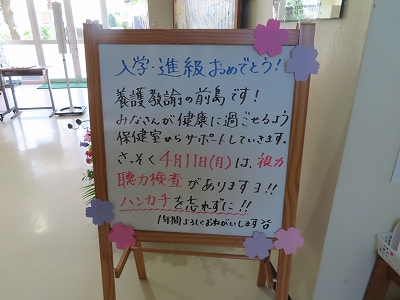 入学・進級おめでとう!
養護教諭の前島です!
みなさんが健康に過ごせるよう
保健室からサポートしていきます。
さっそく4月11日(月)は、視力
聴力検査がありますヨ!!
ハンカチを忘れずに!!
1年間よろしくおねがいします